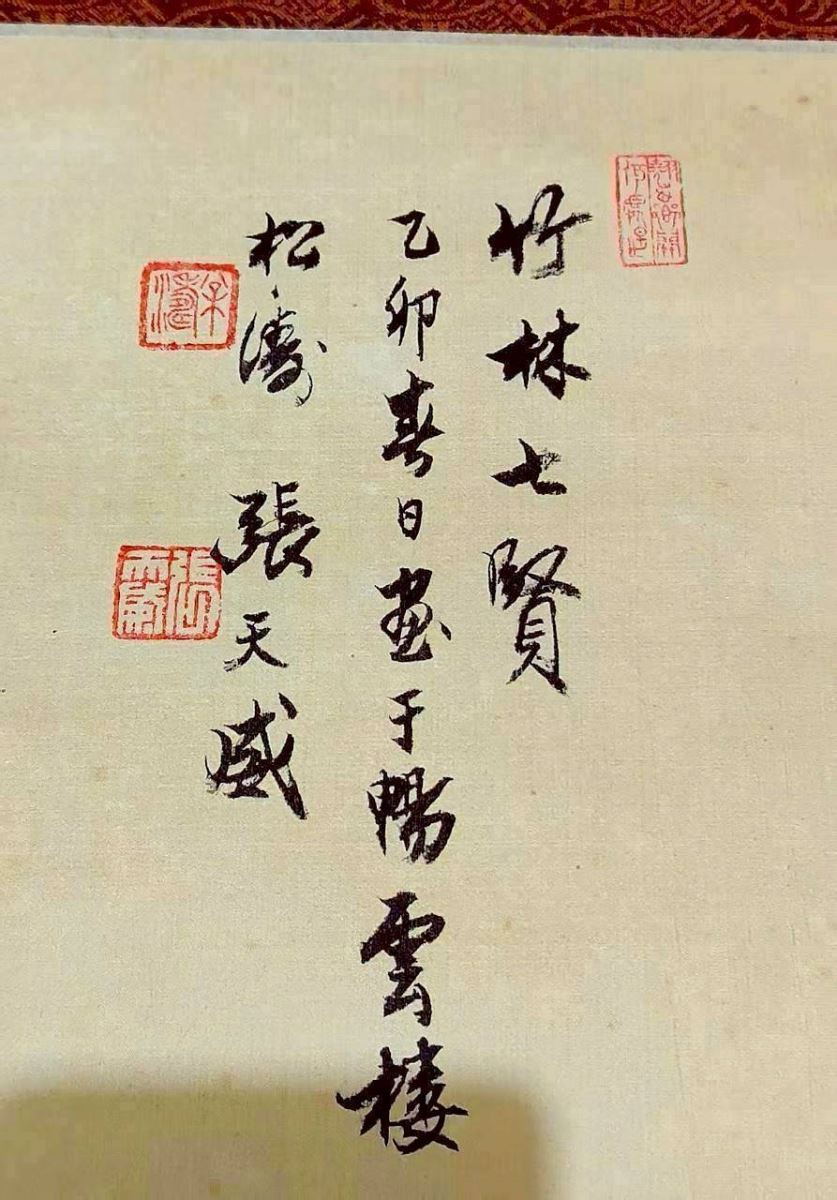 竹林七賢
乙卯春日畫于暢雲樓
松濤 張天威
松濤
張天威